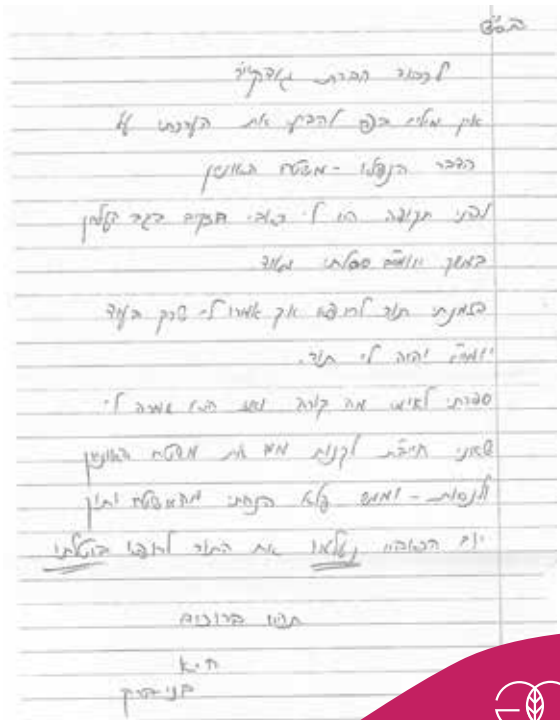 בס"ד
לכבוד חברת
אין מילים בפי להביע את הערכתי על
הדבר הנפלא - משטח האוניקס
לפני תקופה היו לי כאבי חזקים בגב העליון
במשך יומיים סבלתי מאוד.
הזמנתי תור לרופא אך אמרו לי שרק בעוד
יומיים יהיה לי תור.
ספרתי לאימי מה קורה ואז היא אמרה לי
שאני חייבת לקנות את משטח
ולנסות - וממש פלא הנחתי מהמשטח ותוך
יום הכאבים נעלמו את התור לרופא ביטלתי
תהיו ברוכים
ח.א
בני ברק